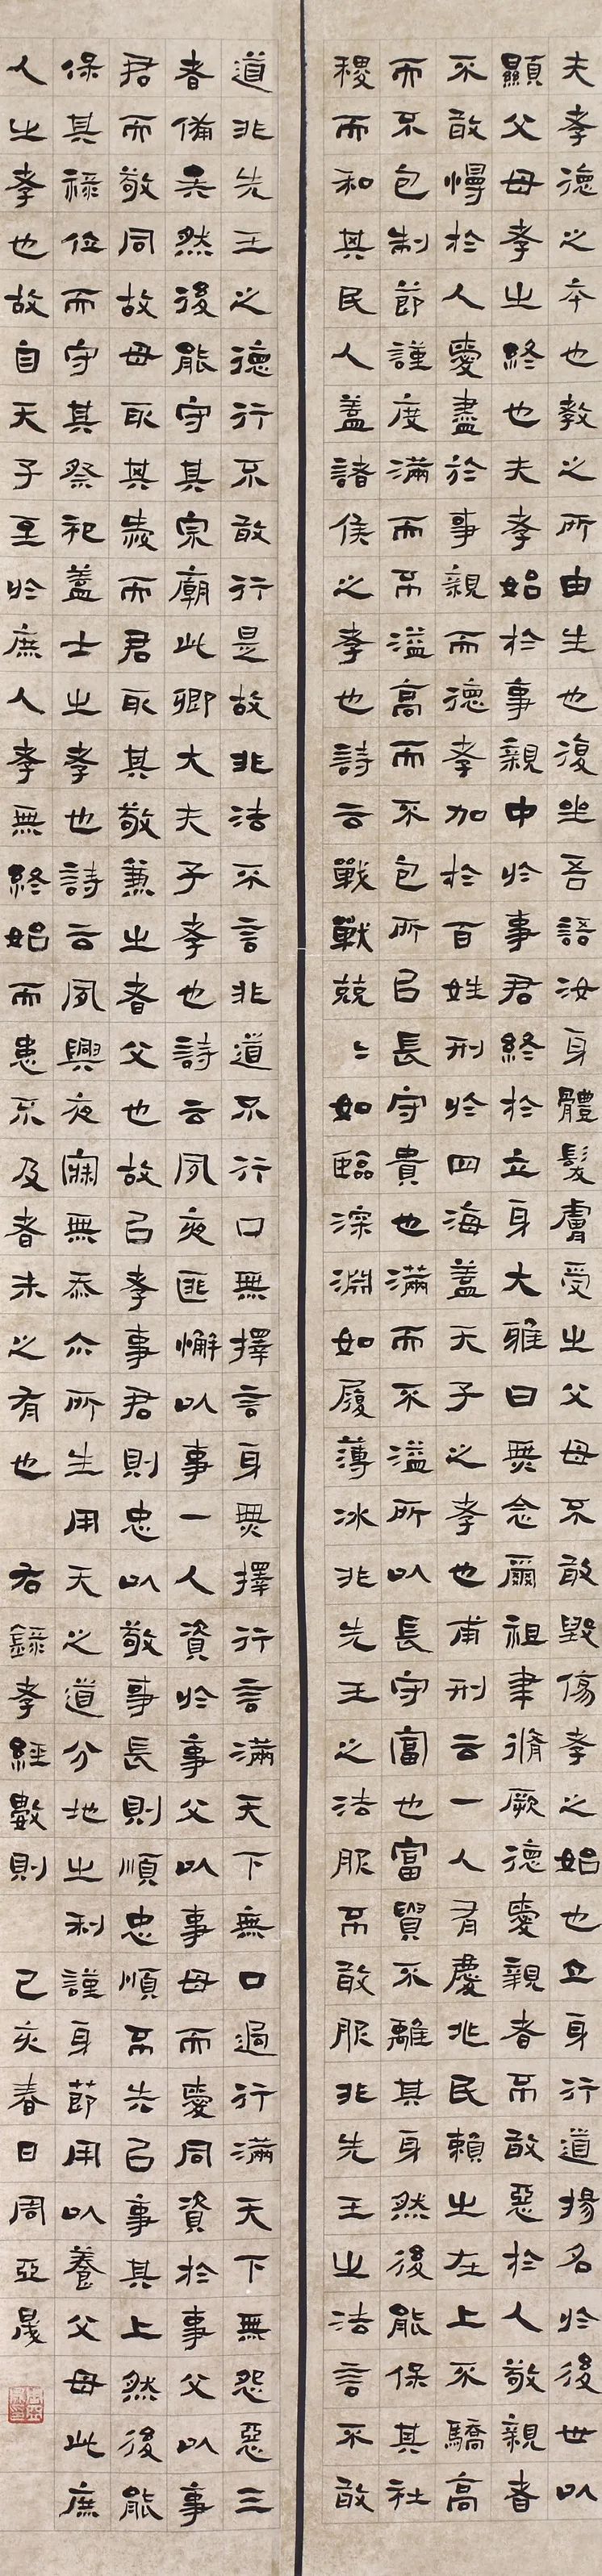 夫孝德之本也教之所由生也復坐吾語汝身體髮膚受之父母不敢毀傷孝之始也立身行道揚名於後世以
顯父母孝之終也夫孝始於事親中於事君終於立身大雅曰無念爾祖聿脩厥德愛親者不敢惡於人敬親者
不敢慢於人愛盡於事親而德孝加於百姓刑於四海蓋天子之孝也甫刑云一人有慶兆民賴之在上不驕高
而不危制節謹度滿而不溢高而不危所以長守貴也滿而不溢所以長守富也富貴不離其身然後能保其社
稷而和其民人蓋諸侯之孝也詩云戰戰兢〻如臨深淵如履薄冰非先王之法服不敢服非先王之法言不敢
道非先王之德行不敢行是故非法不言非道不行口無擇言身無擇行言滿天下無口過行滿天下無怨惡三
者備矣然後能守其宗廟此卿大夫子孝也詩云夙夜匪懈以事一人資於事父以事母而愛同資於事父以事
君而敬同故母取其愛而君取其敬兼之者父也故以孝事君則忠以敬事長則順忠順不失以事其上然後能
保其祿位而守其祭祀蓋士之孝也詩云夙興夜寐無忝尒所生用天之道分地之利謹身節用以養父母此庶
人之孝也故自天子至於庶人孝無終始而患不及者未之有也 右錄孝經數則 己亥春日周亞晟